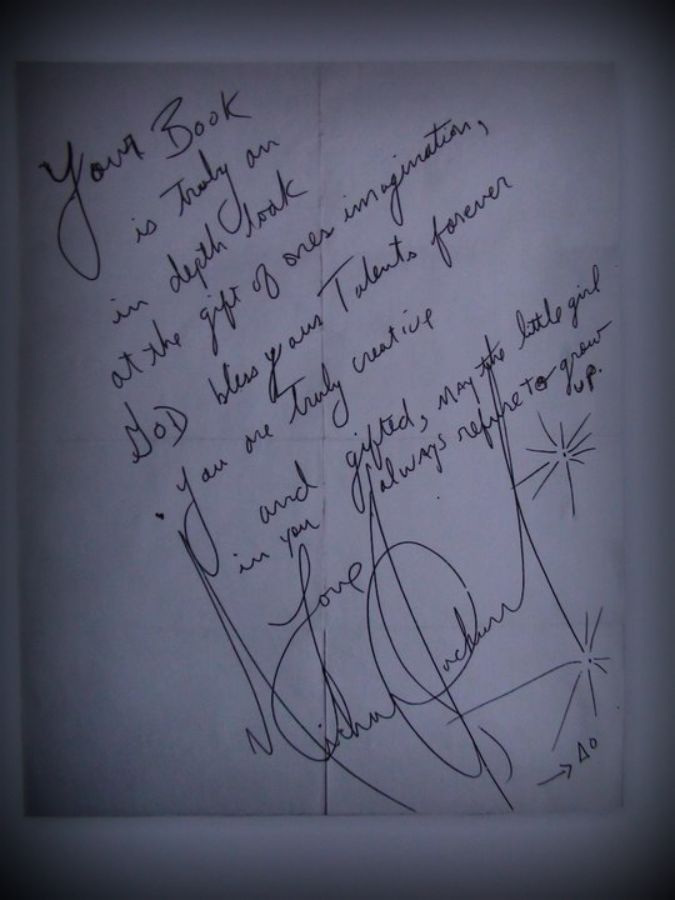 Your Book
is truly an
in depth look
at the gift of ones imagination,
GOD bless your Talents forever
you are truly creative
and gifted, may the little girl
in you always refuse to grow
up.
Love
Michael Jackson